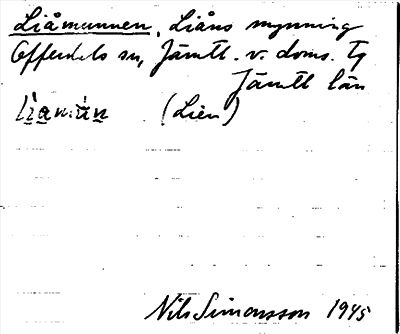 Liåmunnen, Liåns mynning
Offerdals sn, Jämtl. v. doms. tg
Jämtl län
(Lien)
Nils Simonsson 1945